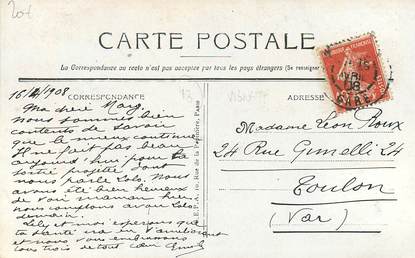 CARTE POSTALE
La Correspondance au recto n'est pas acceptée par tous les pays étrangers (Se renseigner
CORRESPONDANCE
ADRESSE
16/4/1908
Ma chère
nous sommes bien
contents de savoir
que le mieux continue
Il ne fait pas beau
aujourd'hui pour la
sortie projetée dont
nous parle Lolo. Nous
avons été bien heureux
de voir maman hier
nous comptons avoir Lolo
demain.
Lily et moi espérons que
ta santé va en s'améliorant
et nous vous embrassons
tous trois de tout cœur
Madame Léon Roux
24 Rue Gimelli 24
Toulon
(Var)